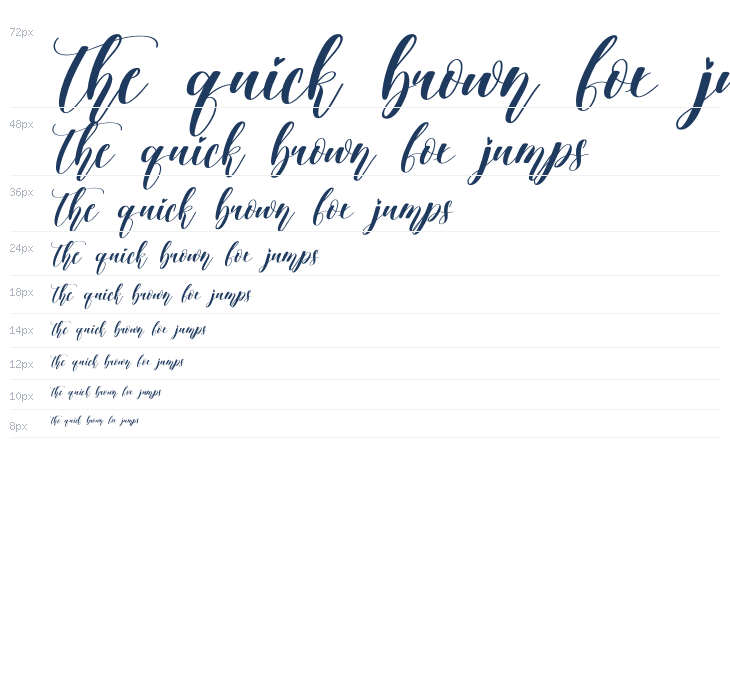 72px the quick brown fox ju
48px the quick brown fox jumps
36px the quick brown fox jumps
24px the quick brown fox jumps
18px the quick brown fox jumps
14px the quick brown fox jumps
12px the quick brown fox jumps
10px the quick brown fox jumps
8px the quick brown fox jumps